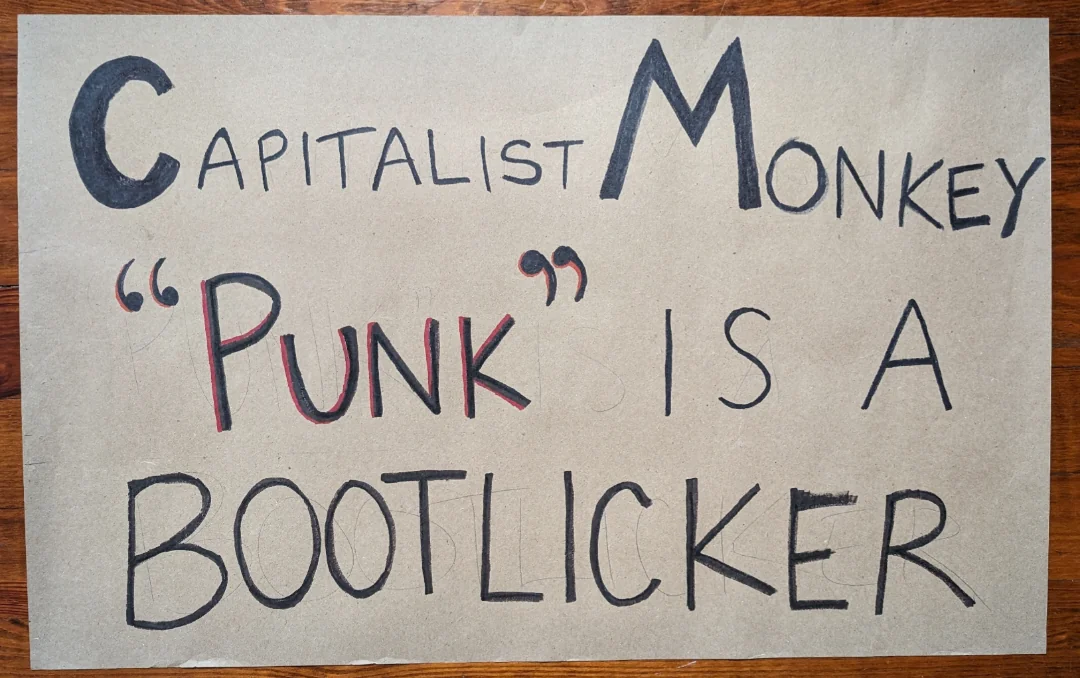 CAPITALIST MONKEY
“PUNK” IS A
BOOTLICKER